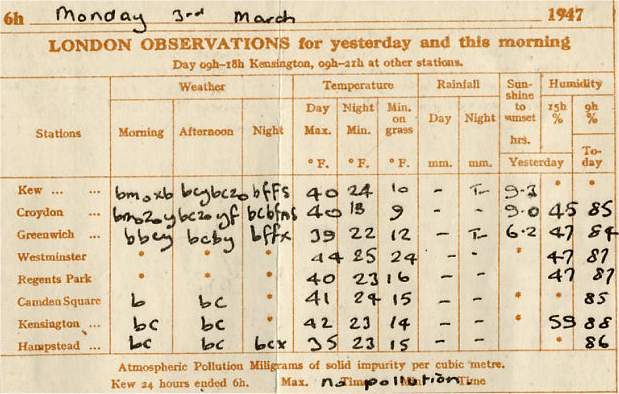 6h Monday 3rd March 1947
LONDON OBSERVATIONS for yesterday and this morning
Day 09h-18h Kensington, 09h-21h at other stations.
Weather Temperature Rainfall Sun-shine to sunset hrs. Humidity
Stations Morning Afternoon Night Day Max. Night Min. Min. on grass Day Night 15h % 9h %
° F. ° F. ° F. mm. mm. Yesterday To-day
Kew ... ... bm₀xb bcybcz₀ bffs 40 24 10 - T- 9.3 * *
Croydon ... bm₀z₀y bcz₀yf bcbfms 40 18 9 - - 9.0 45 85
Greenwich ... bbcy bcby bffx 39 22 12 - T- 6.2 47 84
Westminster * * * 44 25 24 - - * 47 87
Regents Park * * * 40 23 16 - - 47 87
Camden Square b bc * 41 24 15 - - * * 85
Kensington ... bc bc * 42 23 14 - - * 59 88
Hampstead ... bc bc bcx 35 23 15 - - * 86
Atmospheric Pollution Miligrams of solid impurity per cubic metre.
Kew 24 hours ended 6h. Max. no pollution. Time Time